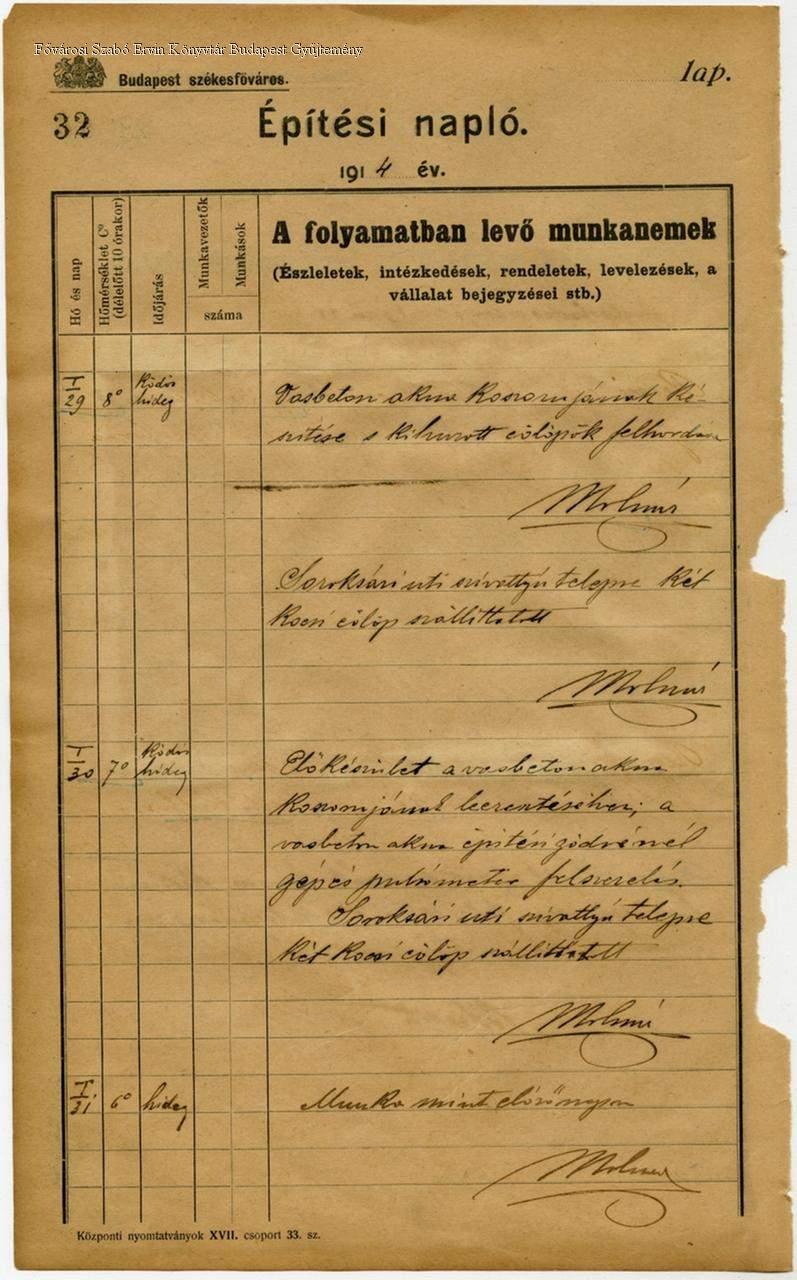 Fővárosi Szabó Ervin Könyvtár Budapest Gyűjtemény
Budapest székesfőváros.
lap.
32
Építési napló.
1914 év.
Hó és nap
Hőmérséklet C°
(délelőtt 10 órakor)
Időjárás
Munkavezetők
Munkások
száma
A folyamatban levő munkanemek
(Észleletek, intézkedések, rendeletek, levelezések, a
vállalat bejegyzései stb.)
I/29 8° ködös
hideg
Vasbeton akna koszorujának ké-
szitése s kihuzott cölöpök felhordása
Molnár
Soroksári uti szivattyú telepre két
kocsi cölöp szállittatott
Molnár
I/30 7° ködös
hideg
Előkészület a vasbeton akna
koszorujának leeresztéséhez; a
vasbeton akna épitési gödrénél
gép és pulsometer felszerelés.
Soroksári uti szivattyú telepre
két kocsi cölöp szállittatott
Molnár
I/31 6° hideg
Munka mint előző napon
Molnár
Központi nyomtatványok XVII. csoport 33. sz.